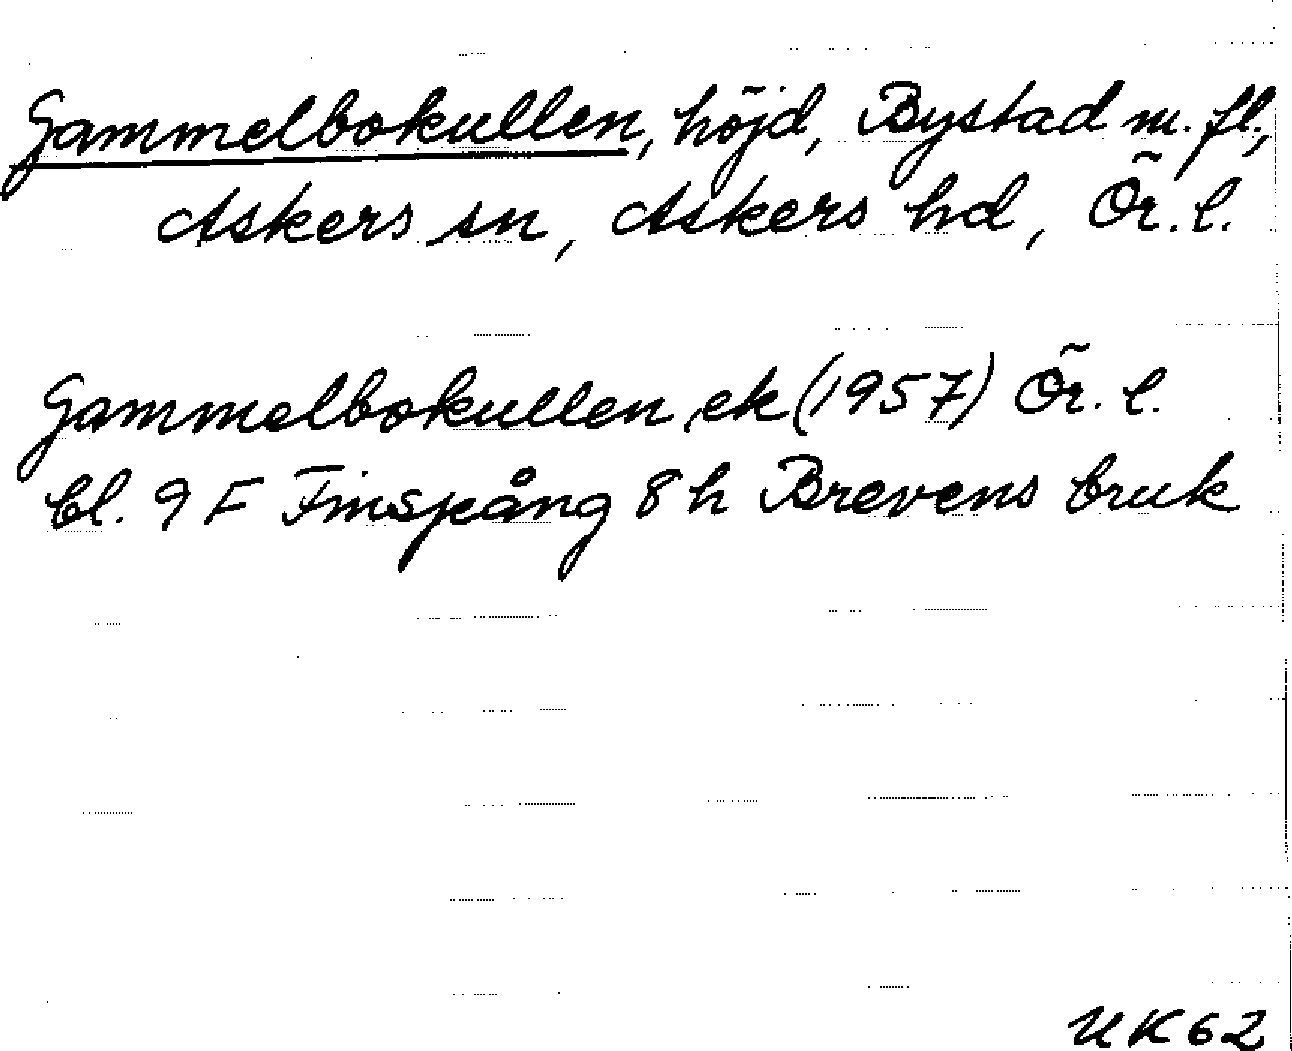 Gammelbokullen, höjd, Bystad m. fl.,
Askers sn, Askers hd, Ör. l.
Gammelbokullen, ek (1957) Ör. l.
bl. 9 F Finspång 8 h Brevens bruk
UK62